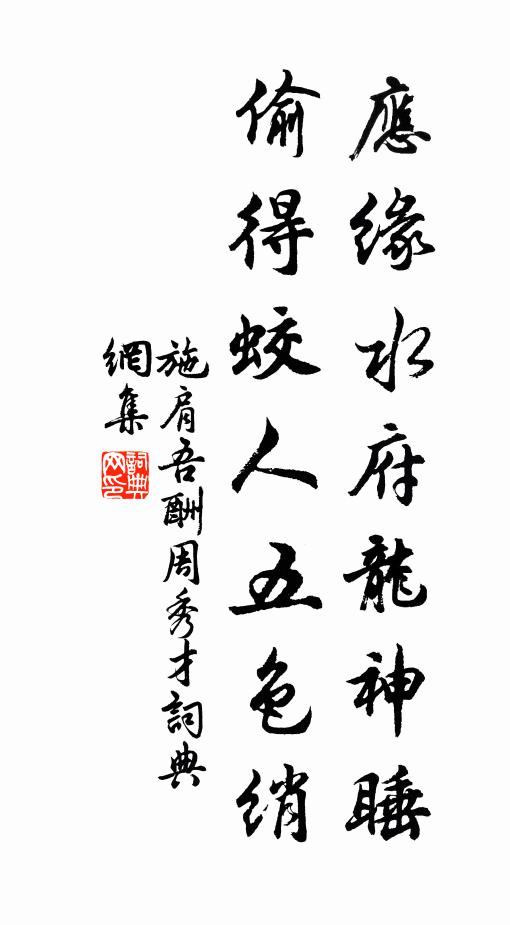 應緣水府龍神睡
偷得蛟人五色綃
施肩吾酬周秀才詞典
網集
詞典網印